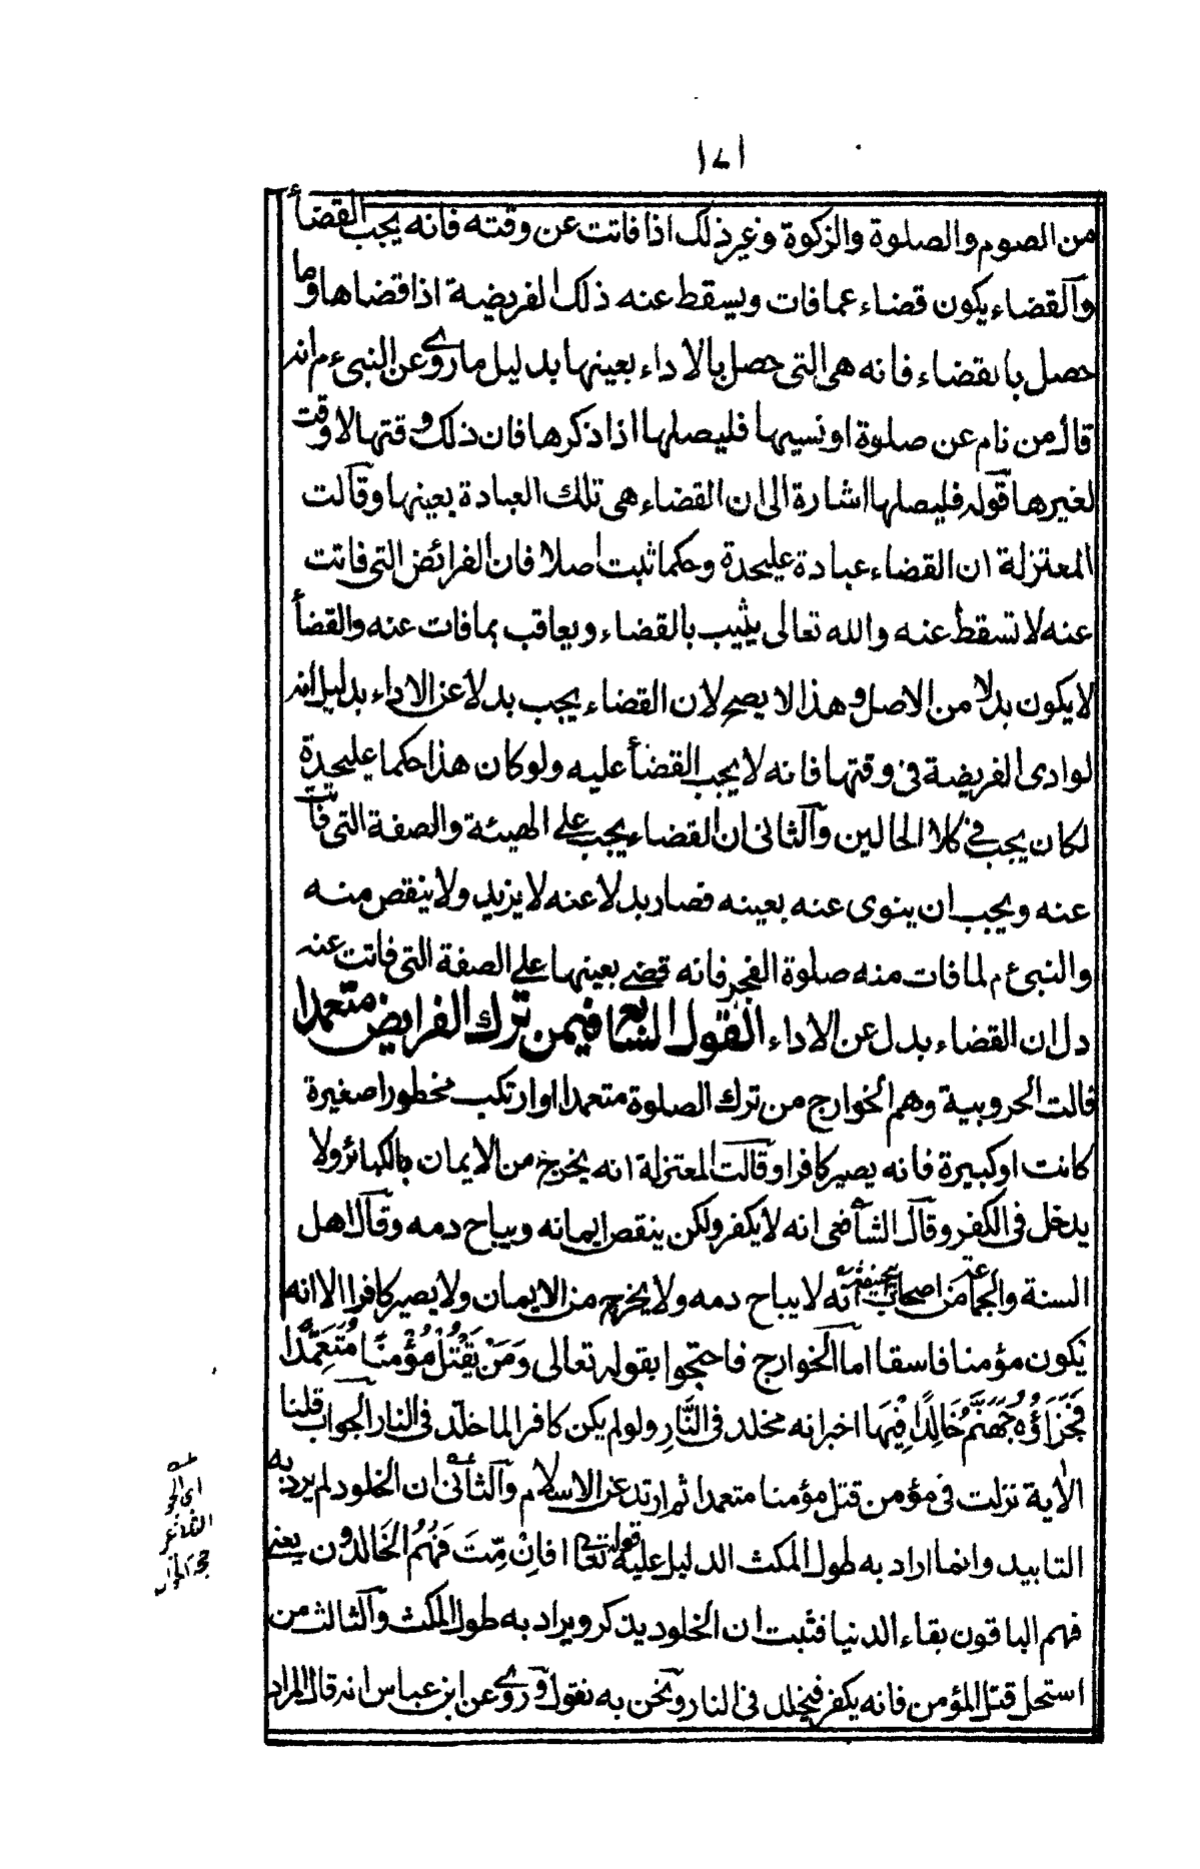 ١٧١
من الصوم والصلوة والزكوة وغير ذلك اذا فاتت عن وقته فانه يجب القضأ
والقضاء يكون قضاء عما فات ويسقط عنه ذلك الفريضة اذا قضاها وما
حصل بالقضاء فانه هى التى حصل بالاداء بعينها بدليل ما روى عن النبى ءم انه
قال من نام عن صلوة او نسيها فليصلها اذا ذكرها فان ذلك وقتها لا وقت
لغيرها قوله فليصلها اشارة الى ان القضاء هى تلك العبادة بعينها وقالت
المعتزلة ان القضاء عبادة عليحدة وحكما ثبت اصلا فان الفرائض التى فاتت
عنه لا تسقط عنه والله تعالى يثيب بالقضاء ويعاقب بما فات عنه والقضأ
لا يكون بدلا من الاصل وهذا لا يصح لان القضاء يجب بدلا عن الاداء بدليل انه
لو ادى الفريضة فى وقتها فانه لا يجب القضأ عليه ولو كان هذا حكما عليحدة
لكان يجب فى كلا الحالين والثانى ان القضاء يجب على الهيئة والصفة التى فاتت
عنه ويجب ان ينوى عنه بعينه فصار بدلا عنه لا يزيد ولا ينقص منه
والنبى ءم لما فات منه صلوة الفجر فانه قضى بعينها على الصفة التى فاتت عنه
دل ان القضاء بدل عن الاداء القول السابع فيمن ترك الفرايض متعمدا
قالت الحروبية وهم الخوارج من ترك الصلوة متعمدا او ارتكب محظورا صغيرة
كانت او كبيرة فانه يصير كافرا وقالت المعتزلة انه يخرج من الايمان بالكبائر ولا
يدخل فى الكفر وقال الشافعى انه لا يكفر ولكن ينقص ايمانه ويباح دمه وقال اهل
السنة والجماعة من اصحاب ابى حنيفة انه لا يباح دمه ولا يخرج من الايمان ولا يصير كافرا الا انه
يكون مؤمنا فاسقا اما الخوارج فاحتجوا بقوله تعالى وَمَنْ يَقْتُلْ مُؤْمِنًا مُتَعَمِّدًا
فَجَزَاؤُهُ جَهَنَّمُ خَالِدًا فِيْهَا اخبر انه مخلد فى النَّارِ ولو لم يكن كافرا لما خلّد فى النار الجواب قلنا
الاية نزلت فى مؤمن قتل مؤمنا متعمدا ثم ارتد عن الاسلام والثانى ان الخلود لم يرد به
التابيد وانما اراد به طول المكث الدليل عليه قوله تعالى افَاِنْ مِّتَ فَهُمُ الْخَالِدُونَ يعنى
فهم الباقون بقاء الدنيا فثبت ان الخلود يذكر ويراد به طول المكث والثالث من
استحل قتل المؤمن فانه يكفر فيخلد فى النار ونحن به نقول وروى عن ابن عباس انه قال المراد